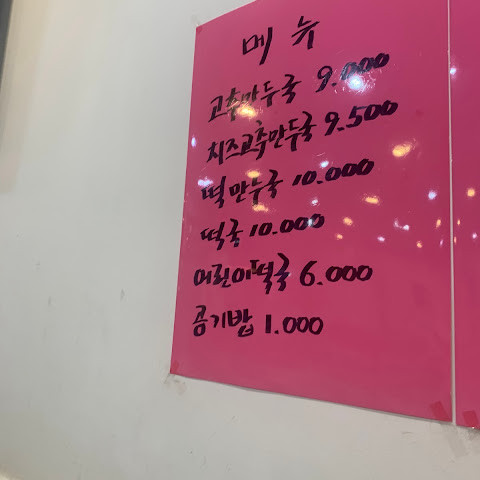 메뉴
고추만두국 9.000
치즈고추만두국 9.500
떡만두국 10.000
떡국 10.000
어린이떡국 6.000
공기밥 1.000